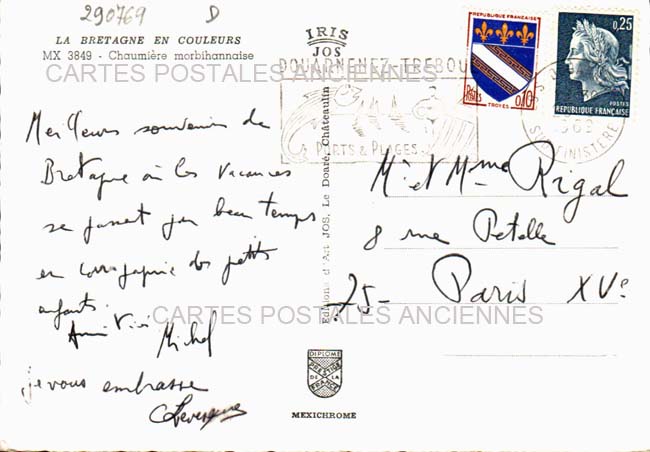 290769 D
LA BRETAGNE EN COULEURS
MX 3849 - Chaumière morbihannaise
Meilleurs souvenirs de
Bretagne où les vacances
se passent par beau temps
en compagnie des petits
enfants.
Michel
je vous embrasse
IRIS
JOS
DOUARNENEZ-TREBOUL
PORTS & PLAGES
Editions d'Art JOS, Le Doaré, Châteaulin
REPUBLIQUE FRANÇAISE
POSTES
0,10
TROYES
0,25
POSTES
REPUBLIQUE FRANÇAISE
1969
FINISTERE
Mr et Mme Rigal
8 rue Petelle
75- Paris XVe
DIPLOME
PRESTIGE
DE LA
FRANCE
MEXICHROME
CARTES POSTALES ANCIENNES
CARTES POSTALES ANCIENNES